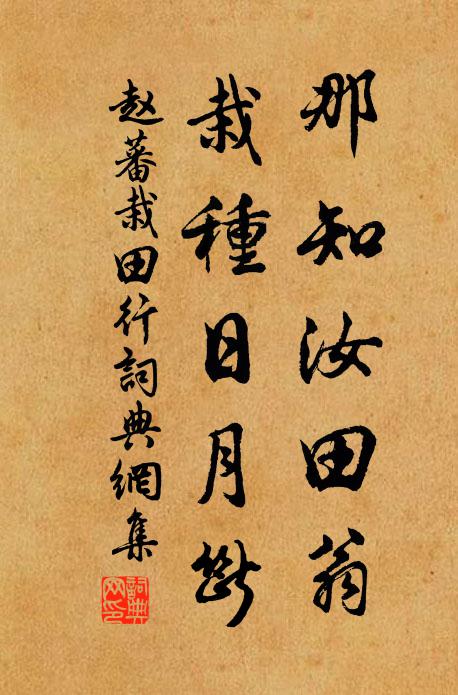 那知汝田翁
栽種日月
赵蕃栽田行詞典網集
詞典
网印